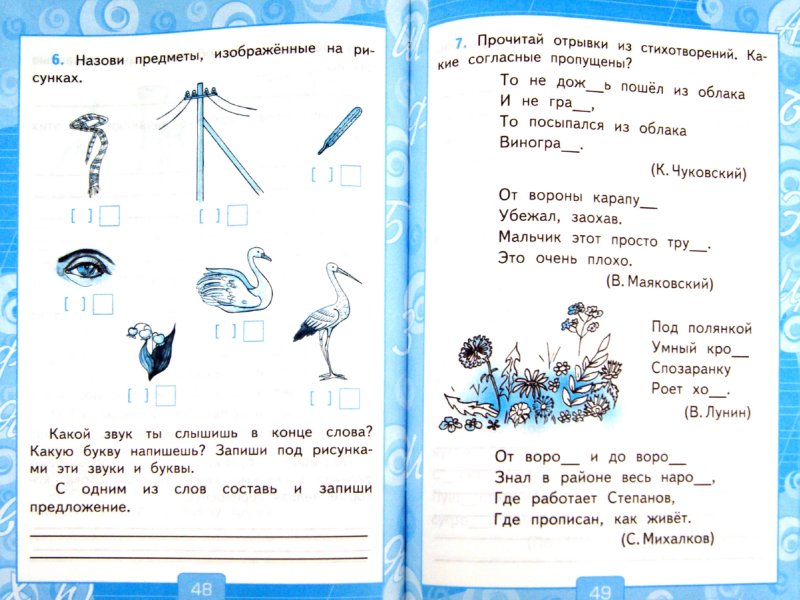 6. Назови предметы, изображённые на ри-
сунках.
[ ]
[ ]
[ ]
[ ]
[ ]
[ ]
[ ]
Какой звук ты слышишь в конце слова?
Какую букву напишешь? Запиши под рисунка-
ми эти звуки и буквы.
С одним из слов составь и запиши
предложение.
48
7. Прочитай отрывки из стихотворений. Ка-
кие согласные пропущены?
То не дож__ь пошёл из облака
И не гра__,
То посыпался из облака
Виногра__.
(К. Чуковский)
От вороны карапу__
Убежал, заохав.
Мальчик этот просто тру__.
Это очень плохо.
(В. Маяковский)
Под полянкой
Умный кро__
Спозаранку
Роет хо__.
(В. Лунин)
От воро__ и до воро__
Знал в районе весь наро__,
Где работает Степанов,
Где прописан, как живёт.
(С. Михалков)
49